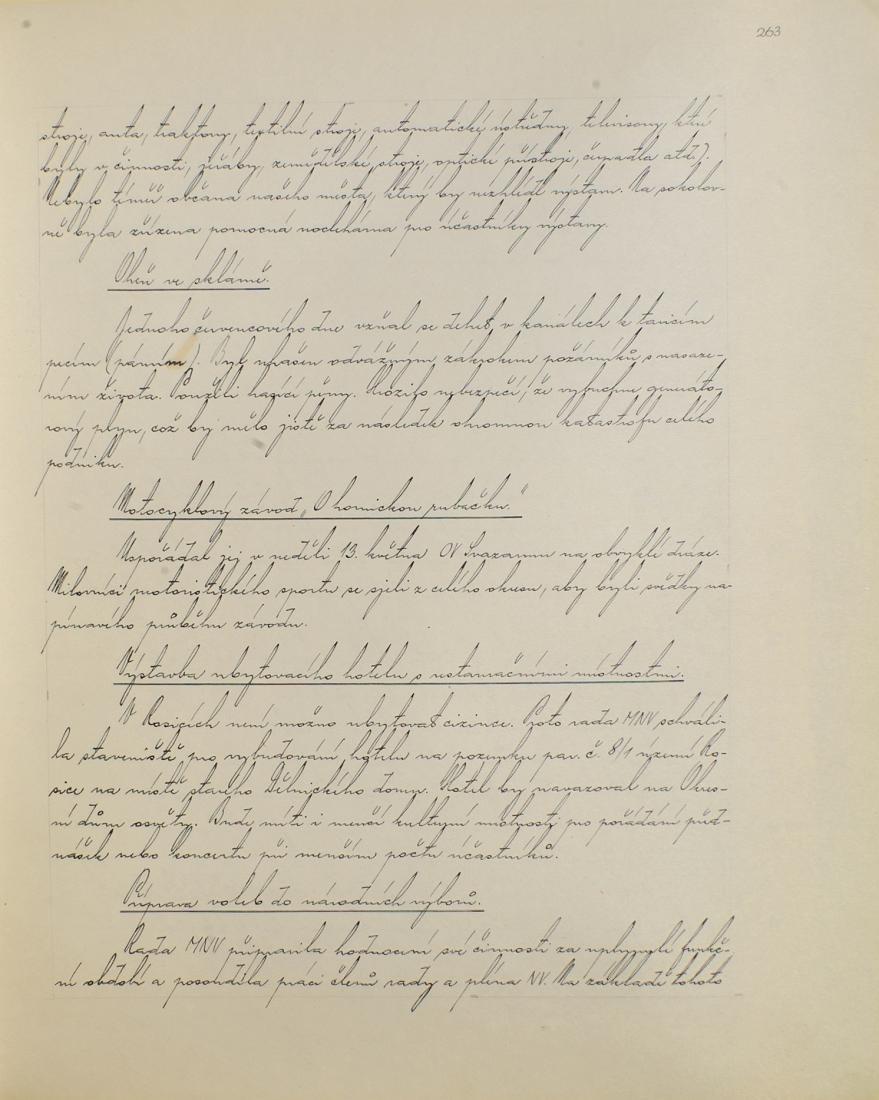 263
stroje, auta, traktory, textilní stroje, automatické ústředny, televisory, které
byly v činnosti, jeřáby, zemědělské stroje, optické přístroje, čerpadla atd.).
Nebylo téměř občana našeho města, který by neshlédl výstavu. Na sokolov-
ně byla zřízena pomocná noclehárna pro účastníky výstavy.
Oheň ve sklárně.
Jednoho červencového dne vzňal se dehet v kanálech k tavicím
pecím (párním). Byl uhašen odvážným zákrokem požárníků s nasaze-
ním života. Použili hasící pěny. Hrozilo nebezpečí, že vybuchne generáto-
rový plyn, což by mělo jistě za následek ohromnou katastrofu celého
podniku.
Motocyklový závod „O hornickou rubačku."
Uspořádal jej v neděli 13. května OV Svazarmu na obvyklé dráze.
Milovníci motoristického sportu se sjeli z celého okresu, aby byli svědky na-
pínavého průběhu závodu.
Výstavba ubytovacího hotelu s restauračními místnostmi.
V Rosicích není možno ubytovat cizince. Proto rada MNV schváli-
la staveniště pro vybudování hotelu na pozemku par. č. 8/1 území Ro-
sice na místě starého Dělnického domu. Hotel by navazoval na Okres-
ní dům osvěty. Bude míti i menší kulturní místnosti pro pořádání před-
nášek nebo koncertu při menším počtu účastníků.
Příprava voleb do národních výborů.
Rada MNV připravila hodnocení své činnosti za uplynulé funkč-
ní období a posoudila práci členů rady a pléna NV. Na základě tohoto